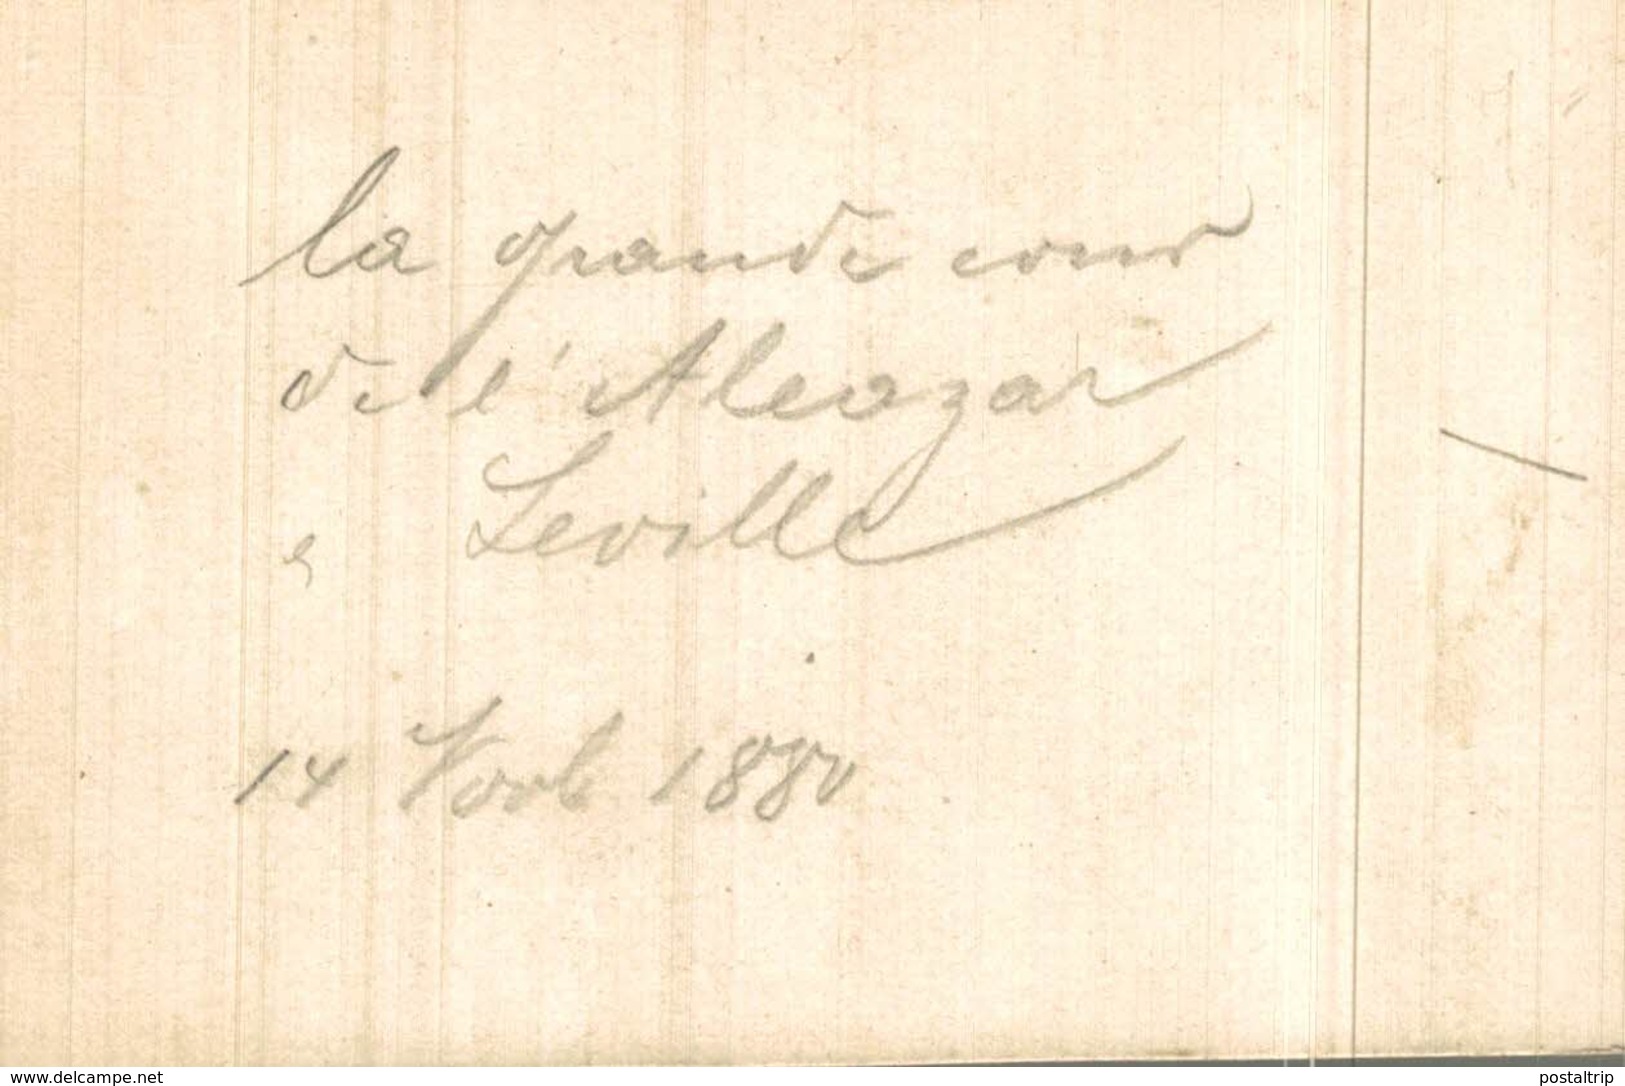 la grande cour
de l'Alcazar
a Seville
14 Novb 1880
www.delcampe.net
postaltrip